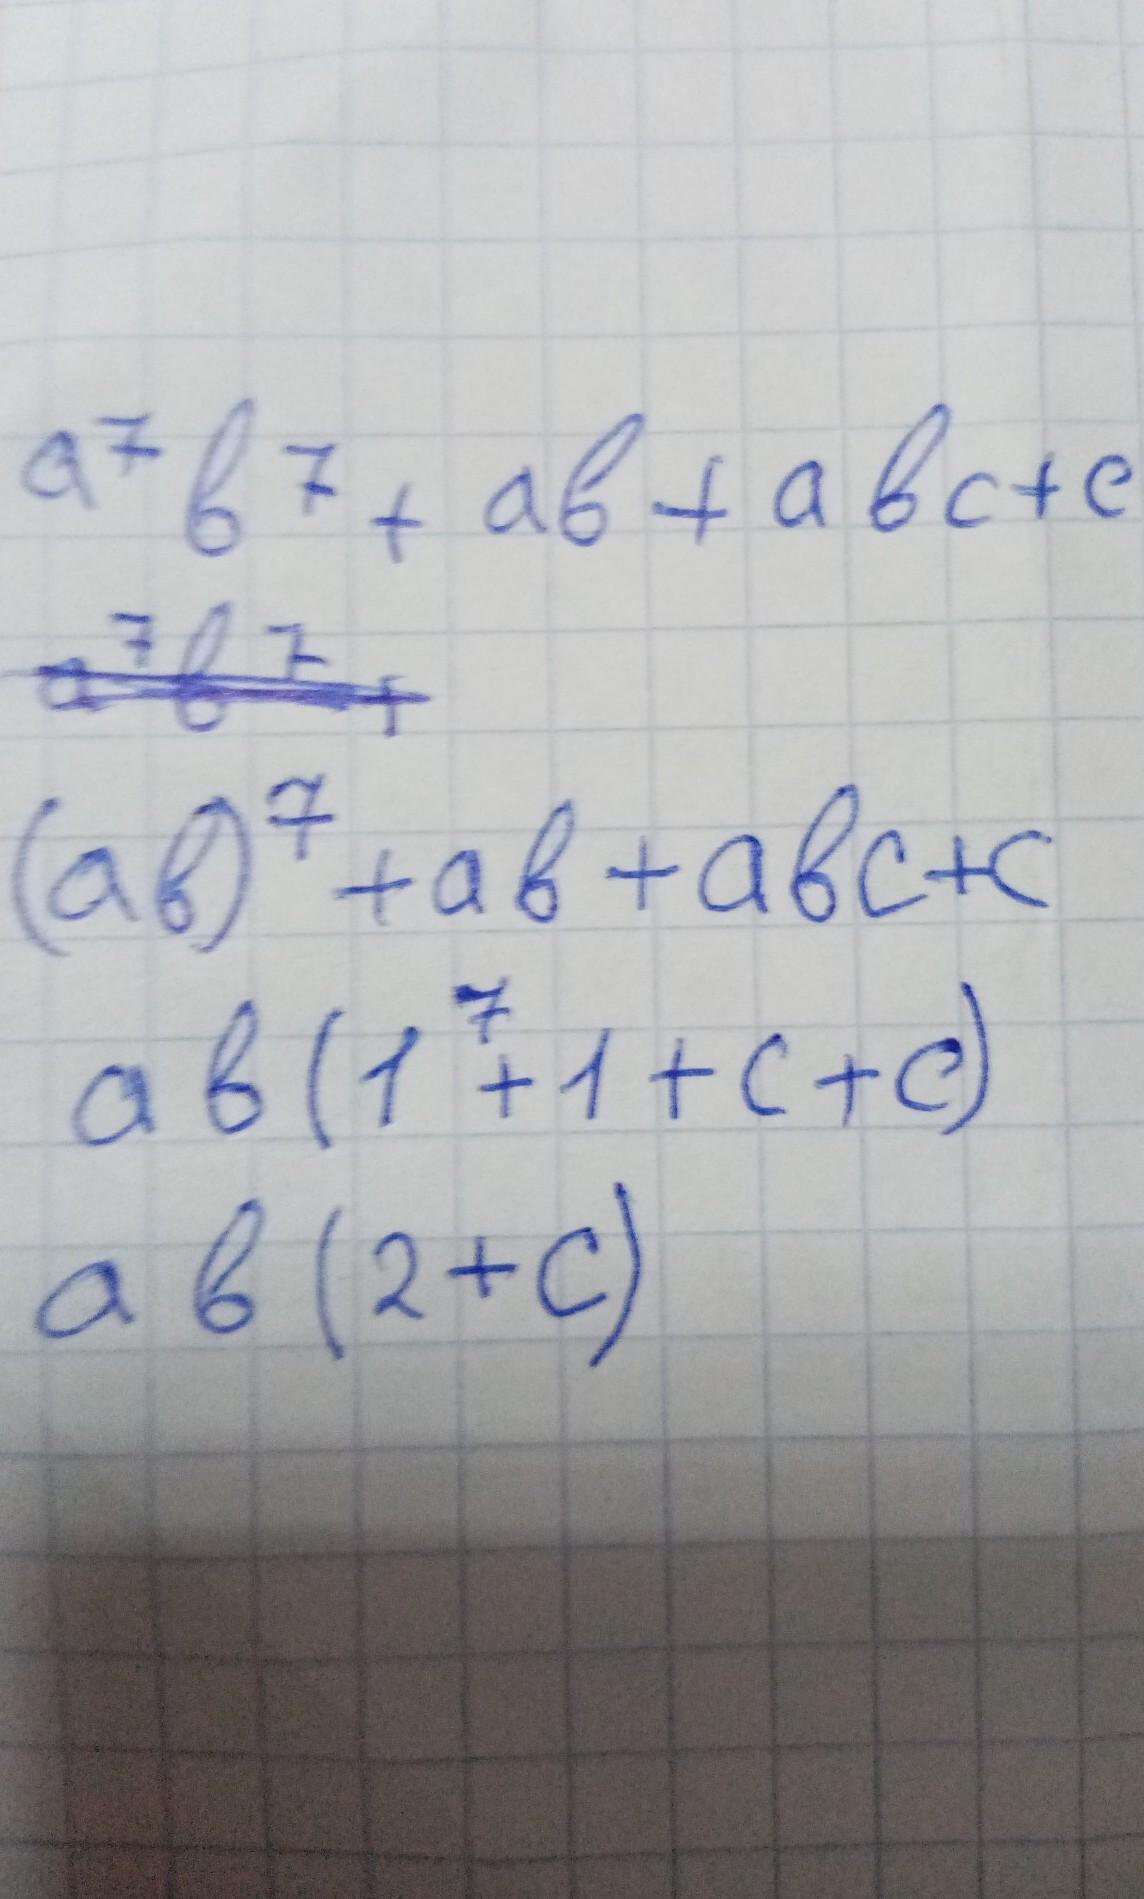 a⁷b⁷ + ab + abc + c
a⁷b⁷ +
(ab)⁷ + ab + abc + c
ab(1⁷ + 1 + c + c)
ab(2 + c)